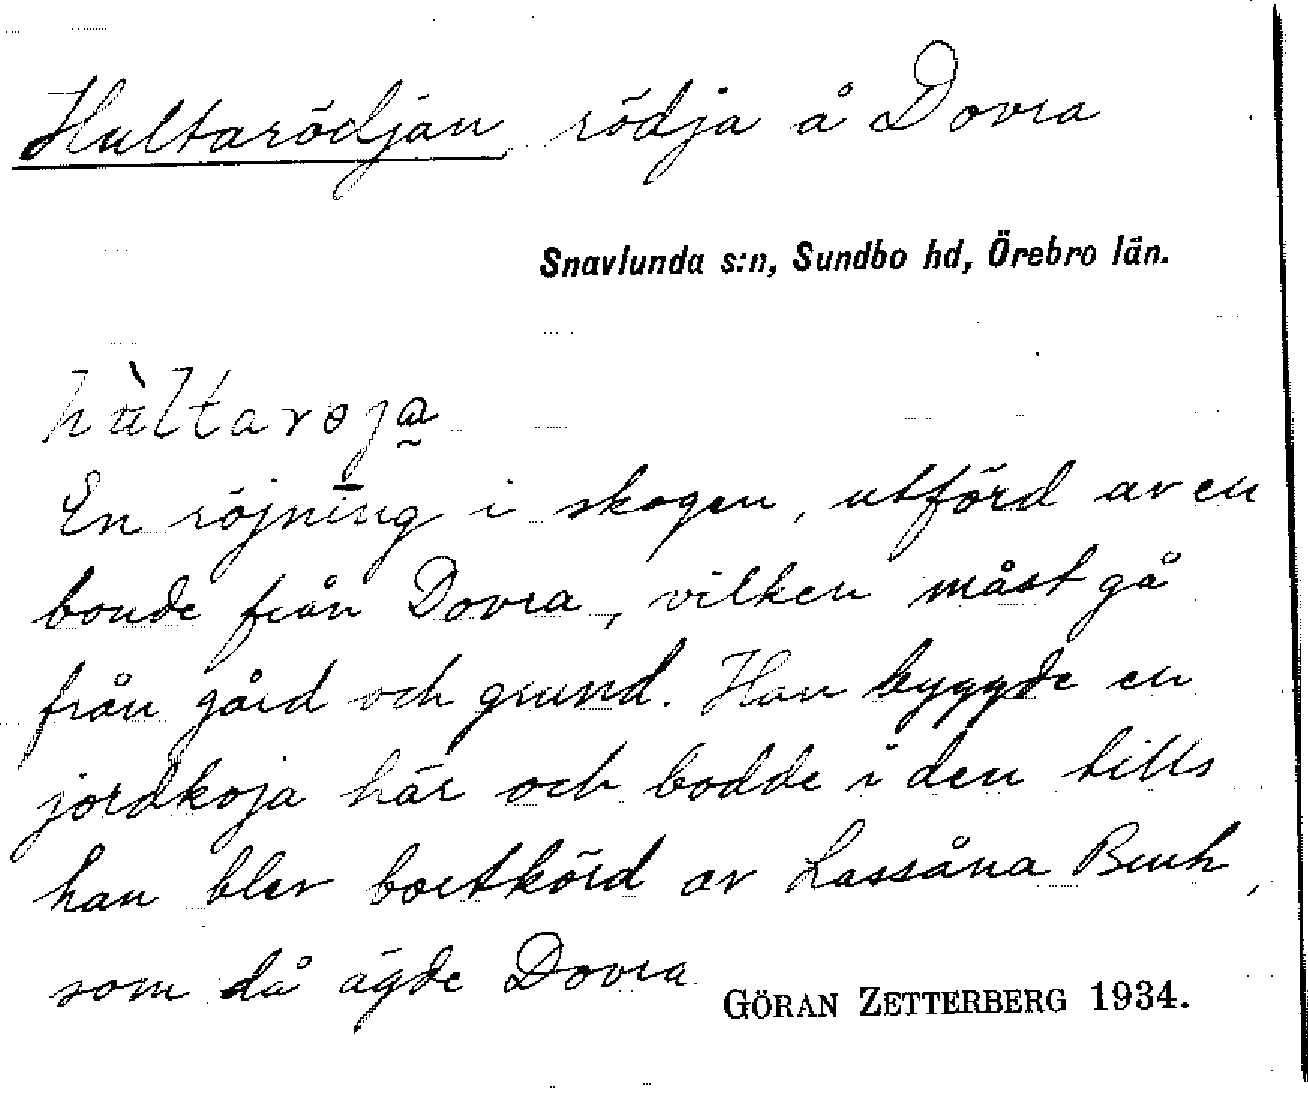 Hultarödjan rödja å Dovra
Snavlunda s:n, Sundbo hd, Örebro län.
hùltaroja̰
En röjning i skogen, utförd av en
bonde från Dovra, vilken måst gå
från gård och grund. Han byggde en
jordkoja här och bodde i den tills
han blev bortkörd av Lassåna Bruk,
som då ägde Dovra
GÖRAN ZETTERBERG 1934.